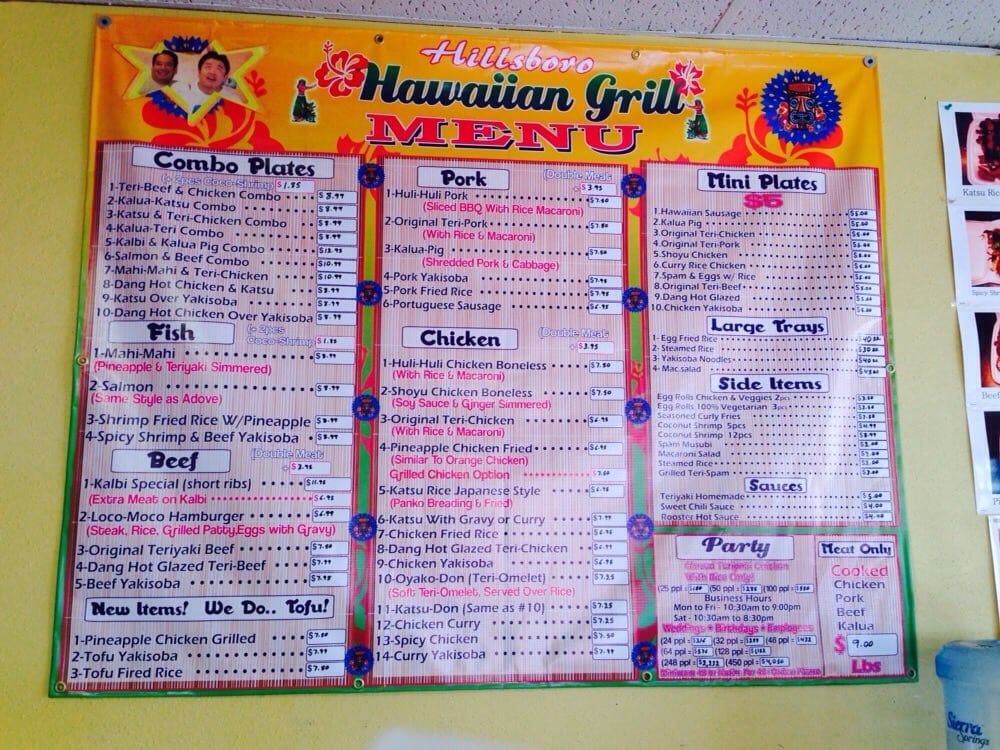 Hillsboro
Hawaiian Grill
MENU
Combo Plates
(+ 2pcs Coco-Shrimp $1.85
1-Teri-Beef & Chicken Combo $8.99
2-Kalua-Katsu Combo $8.99
3-Katsu & Teri-Chicken Combo $8.99
4-Kalua-Teri Combo $8.99
5-Kalbi & Kalua Pig Combo $12.95
6-Salmon & Beef Combo $10.99
7-Mahi-Mahi & Teri-Chicken $10.99
8-Dang Hot Chicken & Katsu $8.99
9-Katsu Over Yakisoba $8.99
10-Dang Hot Chicken Over Yakisoba $8.99
Fish
(+ 2pcs
Coco-Shrimp $1.85
1-Mahi-Mahi
(Pineapple & Teriyaki Simmered)
2-Salmon $8.99
(Same Style as Adove)
3-Shrimp Fried Rice W/Pineapple $8.99
4-Spicy Shrimp & Beef Yakisoba
Beef
(Double Meat
+ $3.95
1-Kalbi Special (short ribs) $11.95
(Extra Meat on Kalbi $6.95
2-Loco-Moco Hamburger $6.99
(Steak, Rice, Grilled Patty,Eggs with Gravy)
3-Original Teriyaki Beef $7.50
4-Dang Hot Glazed Teri-Beef $7.99
5-Beef Yakisoba $7.95
New Items! We Do.. Tofu!
1-Pineapple Chicken Grilled $7.50
2-Tofu Yakisoba $7.99
3-Tofu Fired Rice $7.50
Pork
(Double Meat
+ $3.95
1-Huli-Huli Pork $7.50
(Sliced BBQ With Rice Macaroni)
2-Original Teri-Pork $7.50
(With Rice & Macaroni)
3-Kalua-Pig $7.50
(Shredded Pork & Cabbage)
4-Pork Yakisoba $7.95
5-Pork Fried Rice $7.95
6-Portuguese Sausage
Chicken
(Double Meat
+ $3.95
1-Huli-Huli Chicken Boneless $7.50
(With Rice & Macaroni)
2-Shoyu Chicken Boneless $7.50
(Soy Sauce & Ginger Simmered)
3-Original Teri-Chicken $6.95
(With Rice & Macaroni)
4-Pineapple Chicken Fried $6.95
(Similar To Orange Chicken)
Grilled Chicken Option $7.50
5-Katsu Rice Japanese Style $6.95
(Panko Breading & Fried)
6-Katsu With Gravy or Curry $7.99
7-Chicken Fried Rice
8-Dang Hot Glazed Teri-Chicken $6.99
9-Chicken Yakisoba
10-Oyako-Don (Teri-Omelet) $7.25
(Soft Teri-Omelet, Served Over Rice)
11-Katsu-Don (Same as #10) $7.25
12-Chicken Curry $7.25
13-Spicy Chicken $7.50
14-Curry Yakisoba $7.99
Mini Plates
$5
1.Hawaiian Sausage $5.00
2.Kalua Pig $5.00
3.Original Teri-Chicken $5.00
4.Original Teri-Pork $5.00
5.Shoyu Chicken $5.00
6.Curry Rice Chicken $5.00
7.Spam & Eggs w/ Rice $5.00
8.Original Teri-Beef $5.00
9.Dang Hot Glazed $5.00
10.Chicken Yakisoba $5.00
Large Trays
1- Egg Fried Rice
2- Steamed Rice
3- Yakisoba Noodles
4- Mac.salad
Side Items
Egg Rolls Chicken & Veggies 2pcs
Egg Rolls 100% Vegetarian 3pcs
Seasoned Curly Fries
Coconut Shrimp 5pcs $4.99
Coconut Shrimp 12pcs $8.99
Spam Musubi
Macaroni Salad
Steamed Rice
Grilled Teri-Spam
Sauces
Teriyaki Homemade $5.00
Sweet Chili Sauce $4.00
Rooster Hot Sauce $4.00
Party
With Rice Only!
(25 ppl = (50 ppl = (100 ppl =
Business Hours
Mon to Fri - 10:30am to 9:00pm
Sat - 10:30am to 8:30pm
Weddings * Birthdays * Employees
(24 ppl = (32 ppl = (48 ppl =
(64 ppl = (128 ppl =
(248 ppl = (450 ppl =
Meat Only
Cooked
Chicken
Pork
Beef
Kalua
$ 9.00
Lbs
Katsu Ric
Spicy Shr
Beef
Sierra
Springs